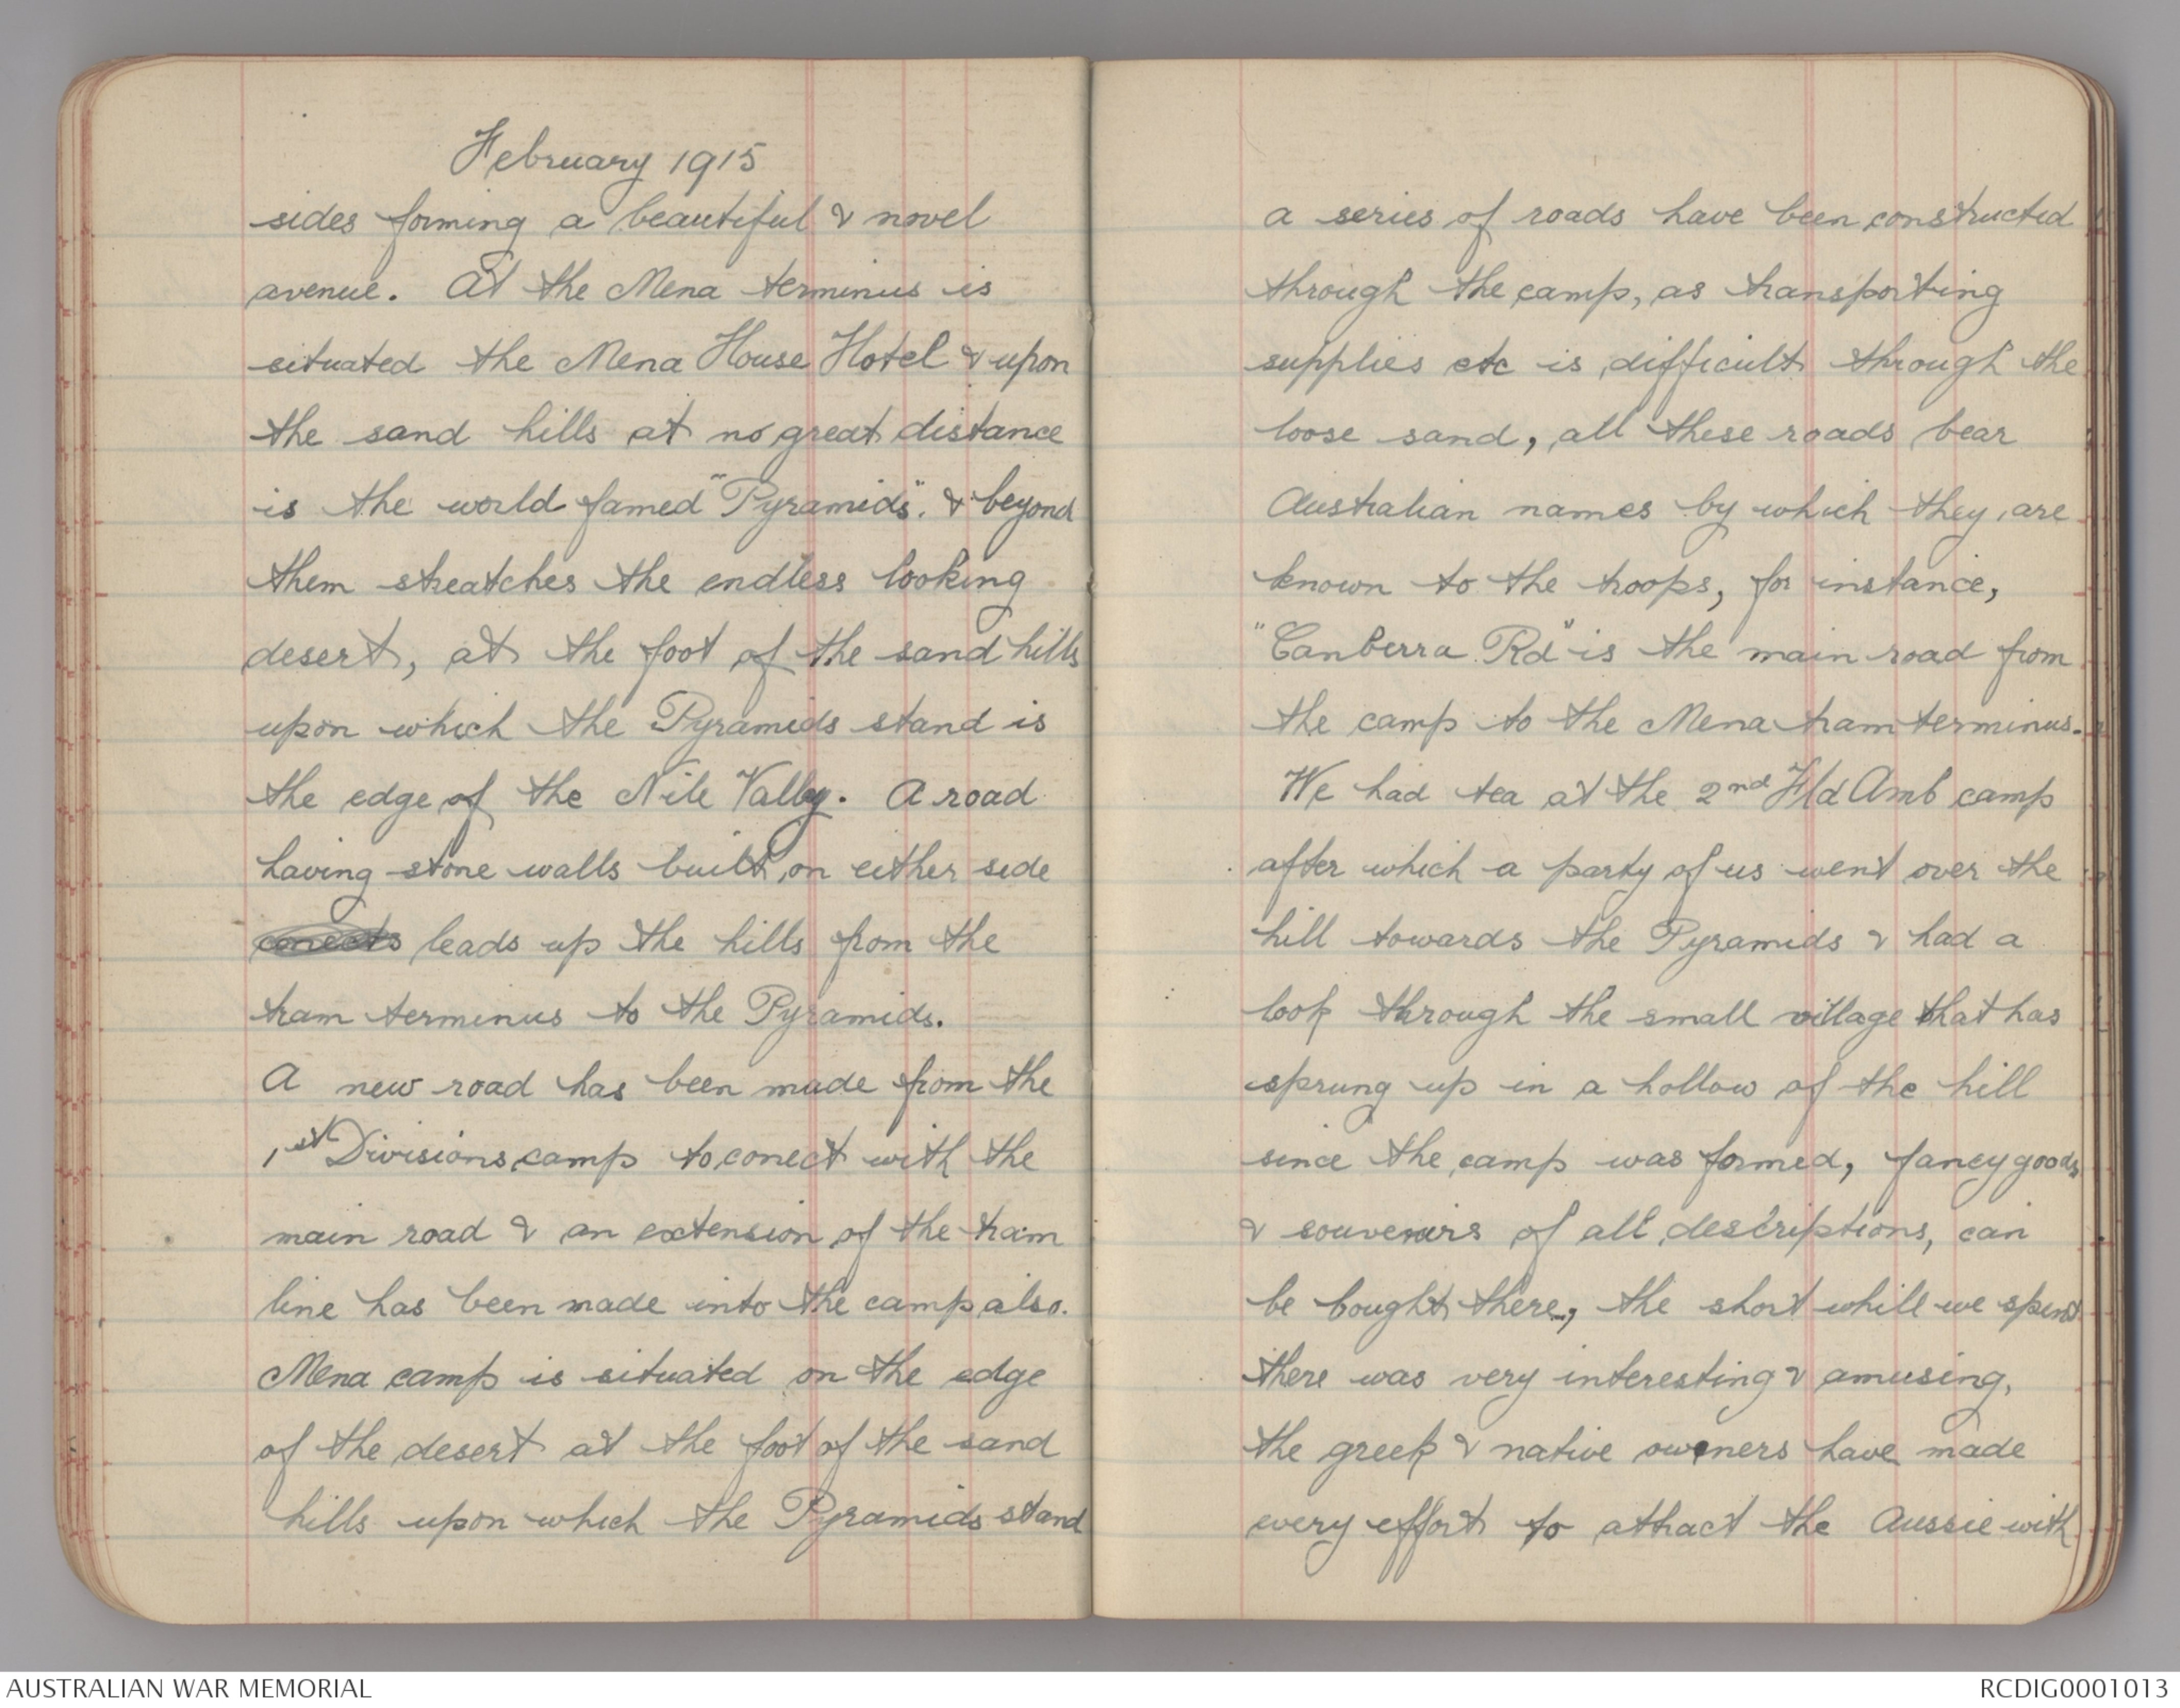 February 1915
sides forming a beautiful & novel
avenue. At the Mena terminus is
situated the Mena House Hotel & upon
the sand hills at no great distance
is the world famed "Pyramids". & beyond
them streatches the endless looking
desert, at the foot of the sand hills
upon which the Pyramids stand is
the edge of the Nile Valley. A road
having stone walls built on either side
conects leads up the hills from the
tram terminus to the Pyramids.
A new road has been made from the
1st Divisions camp to conect with the
main road & an extension of the tram
line has been made into the camp also.
Mena camp is situated on the edge
of the desert at the foot of the sand
hills upon which the Pyramids stand
a series of roads have been constructed
through the camp, as transporting
supplies etc is difficult through the
loose sand, all these roads bear
Australian names by which they are
known to the troops, for instance,
"Canberra Rd" is the main road from
the camp to the Mena tram terminus.
We had tea at the 2nd Fld Amb camp
after which a party of us went over the
hill towards the Pyramids & had a
look through the small village that has
sprung up in a hollow of the hill
since the camp was formed, fancy goods
& souvenirs of all descriptions, can
be bought there, the short whill we spent
there was very interesting & amusing,
the greek & native owners have made
every effort to attract the Aussie with
AUSTRALIAN WAR MEMORIAL
RCDIG0001013